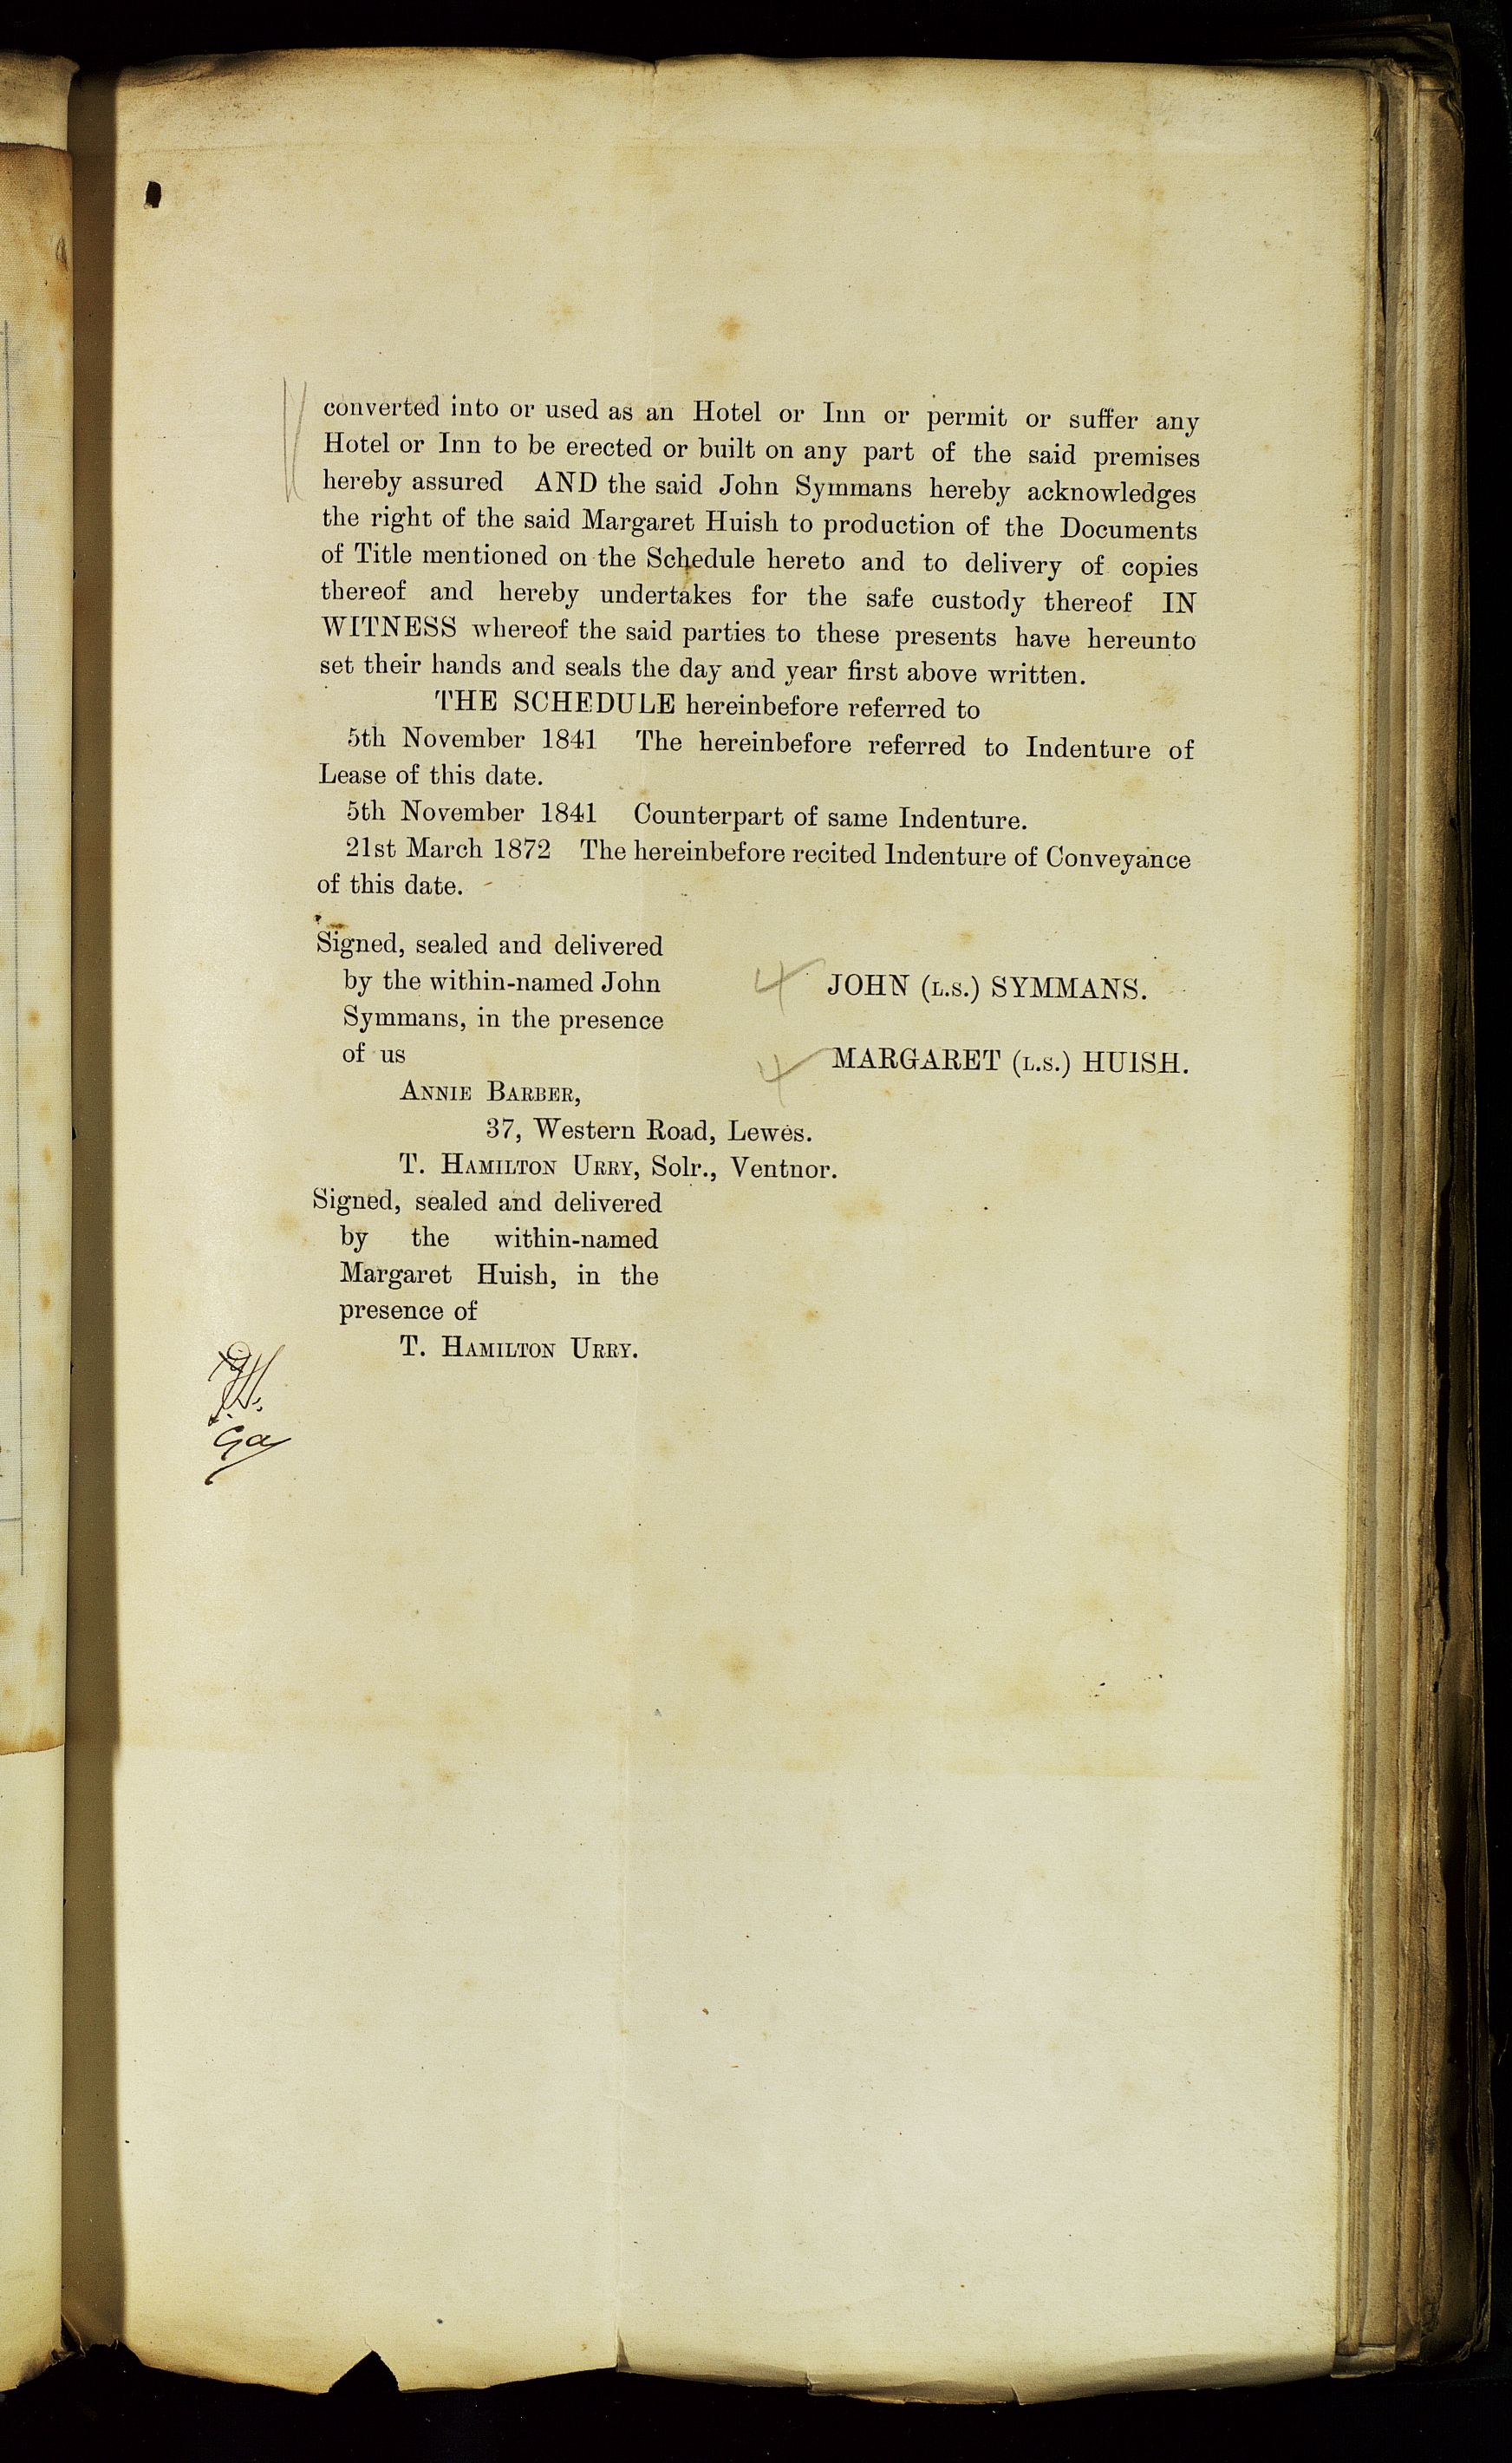 converted into or used as an Hotel or Inn or permit or suffer any
Hotel or Inn to be erected or built on any part of the said premises
hereby assured AND the said John Symmans hereby acknowledges
the right of the said Margaret Huish to production of the Documents
of Title mentioned on the Schedule hereto and to delivery of copies
thereof and hereby undertakes for the safe custody thereof IN
WITNESS whereof the said parties to these presents have hereunto
set their hands and seals the day and year first above written.
THE SCHEDULE hereinbefore referred to
5th November 1841 The hereinbefore referred to Indenture of
Lease of this date.
5th November 1841 Counterpart of same Indenture.
21st March 1872 The hereinbefore recited Indenture of Conveyance
of this date.
Signed, sealed and delivered
by the within-named John
Symmans, in the presence
of us
JOHN (L.S.) SYMMANS.
MARGARET (L.S.) HUISH.
ANNIE BARBER,
37, Western Road, Lewes.
T. HAMILTON URRY, Solr., Ventnor.
Signed, sealed and delivered
by the within-named
Margaret Huish, in the
presence of
T. HAMILTON URRY.